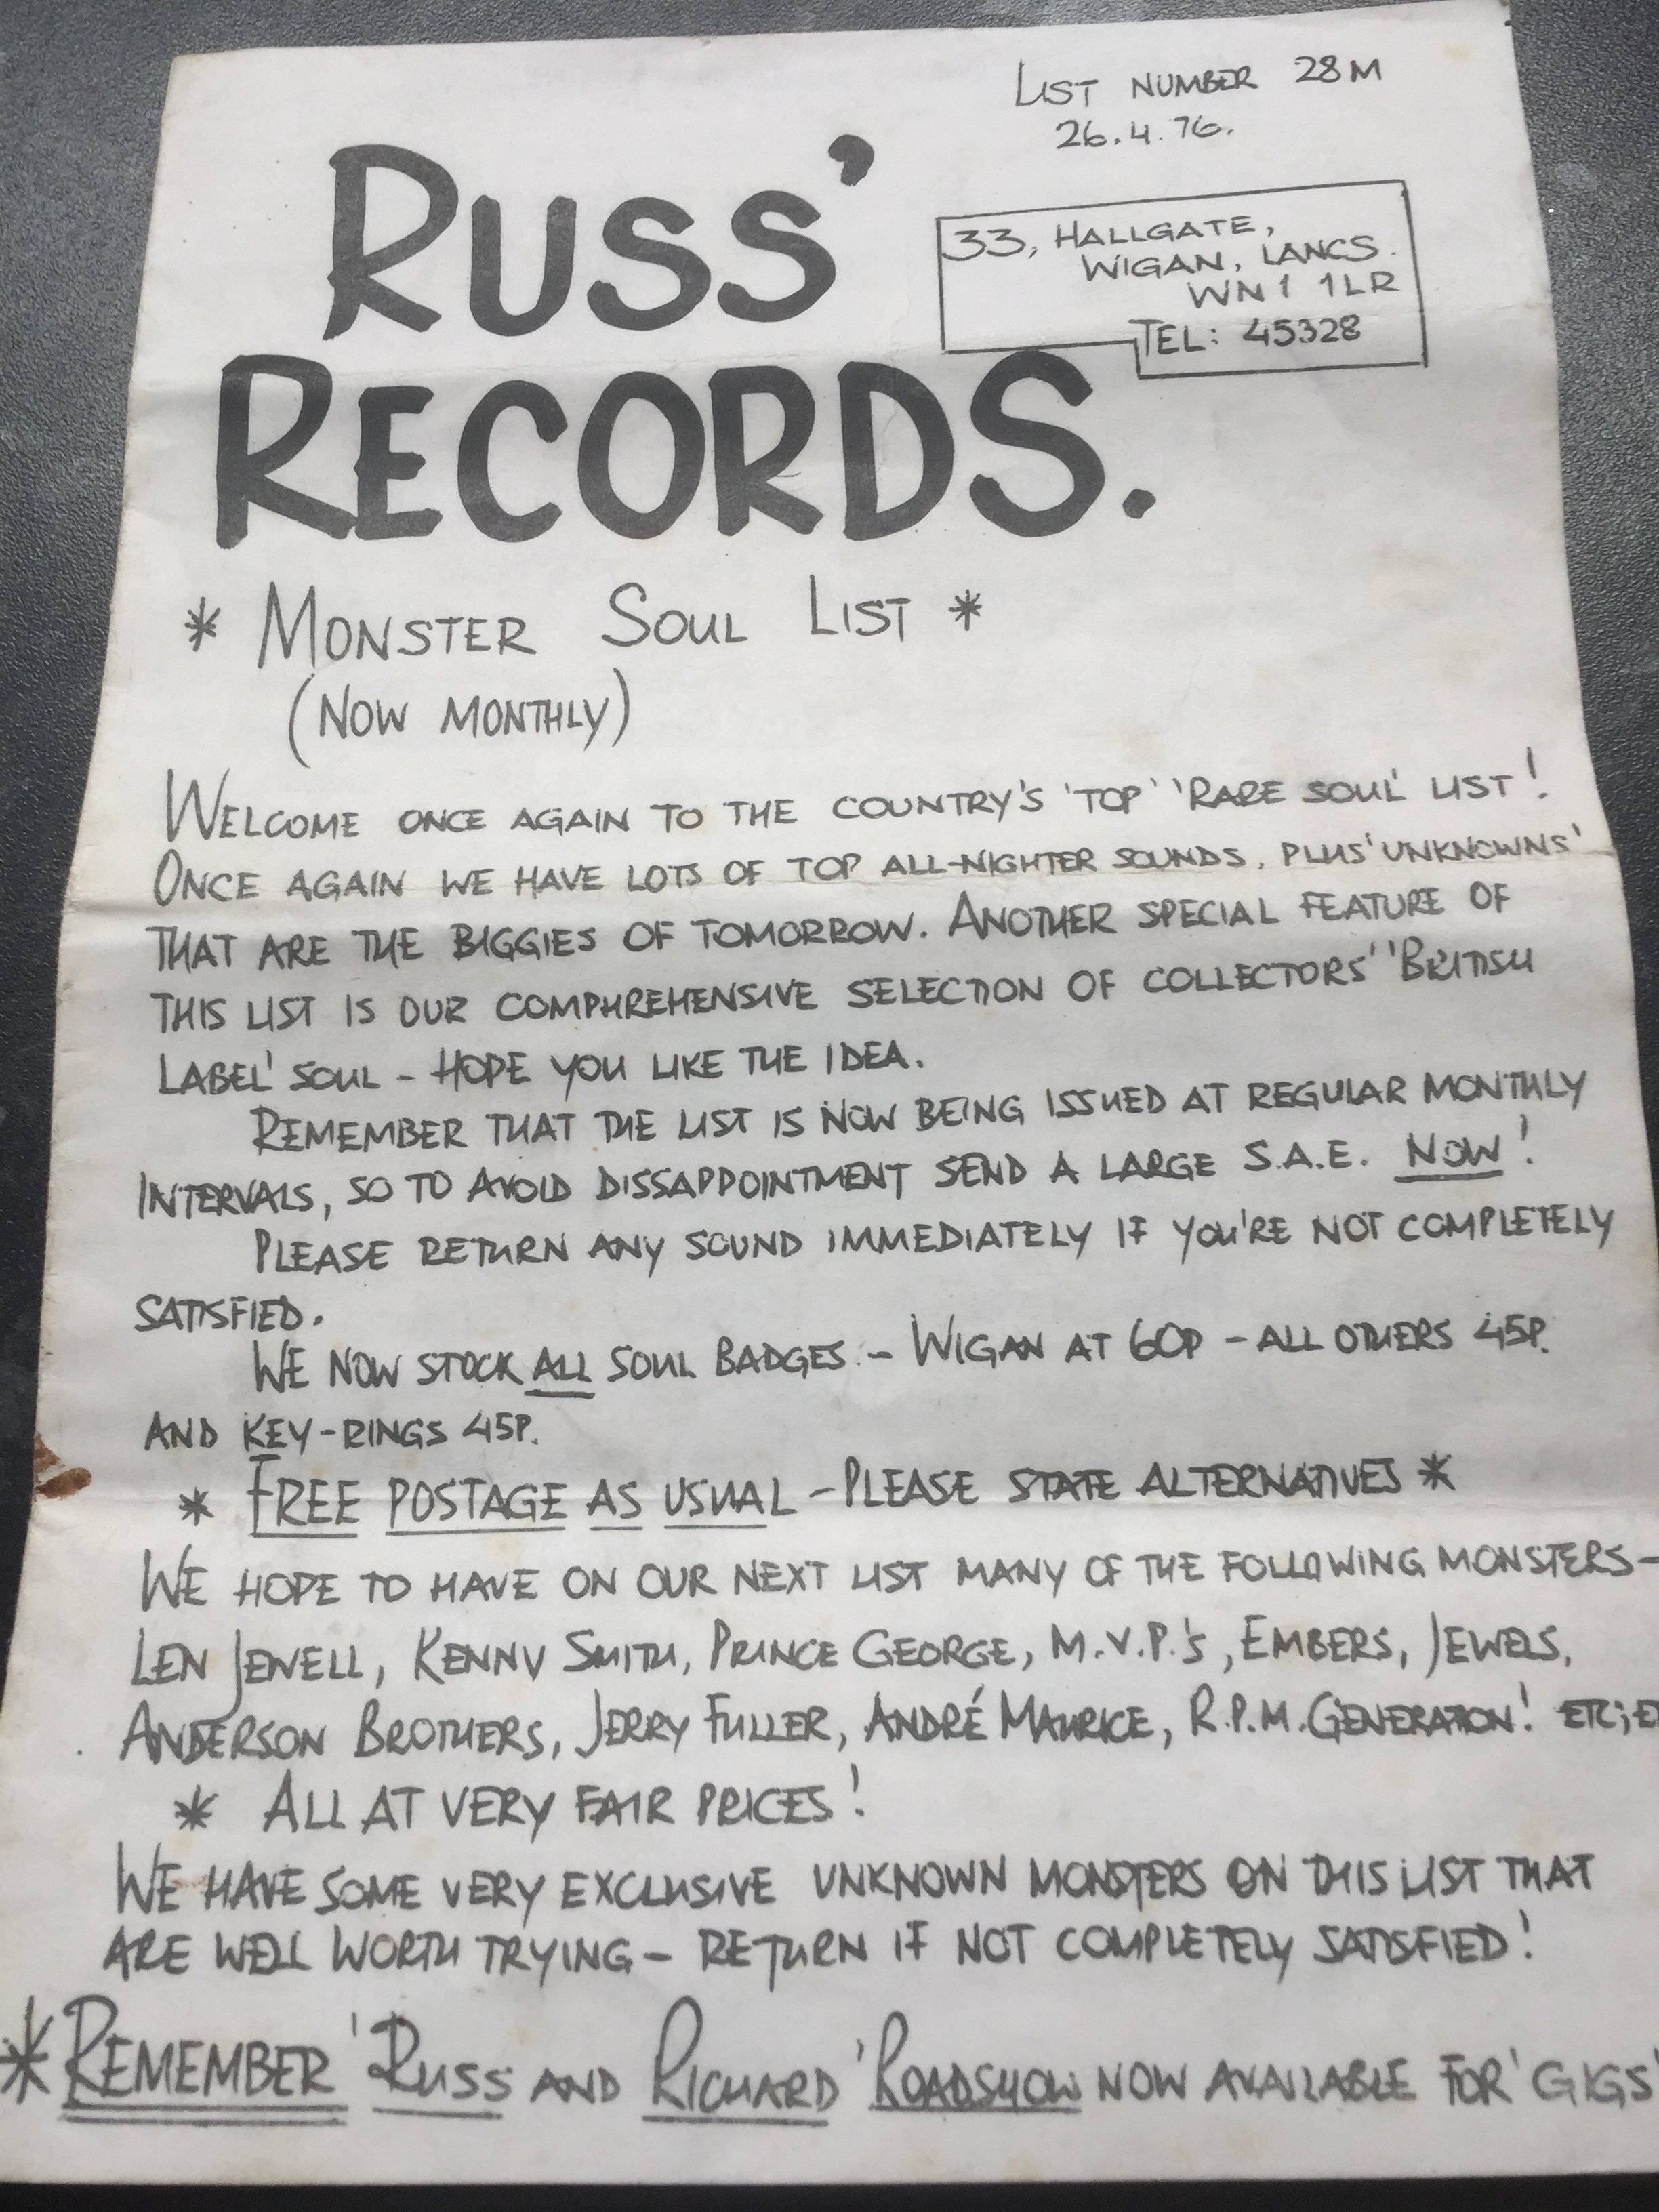 LIST NUMBER 28M
26.4.76.
RUSS'
RECORDS.
33, HALLGATE,
WIGAN, LANCS.
WN1 1LR
TEL: 45328
* MONSTER SOUL LIST *
(NOW MONTHLY)
WELCOME ONCE AGAIN TO THE COUNTRY'S 'TOP' 'RARE SOUL' LIST!
ONCE AGAIN WE HAVE LOTS OF TOP ALL-NIGHTER SOUNDS, PLUS 'UNKNOWNS'
THAT ARE THE BIGGIES OF TOMORROW. ANOTHER SPECIAL FEATURE OF
THIS LIST IS OUR COMPHREHENSIVE SELECTION OF COLLECTORS' 'BRITISH
LABEL' SOUL - HOPE YOU LIKE THE IDEA.
REMEMBER THAT THE LIST IS NOW BEING ISSUED AT REGULAR MONTHLY
INTERVALS, SO TO AVOID DISSAPPOINTMENT SEND A LARGE S.A.E. NOW!
PLEASE RETURN ANY SOUND IMMEDIATELY IF YOU'RE NOT COMPLETELY
SATISFIED.
WE NOW STOCK ALL SOUL BADGES - WIGAN AT 60P - ALL OTHERS 45P.
AND KEY-RINGS 45P.
* FREE POSTAGE AS USUAL - PLEASE STATE ALTERNATIVES *
WE HOPE TO HAVE ON OUR NEXT LIST MANY OF THE FOLLOWING MONSTERS -
LEN JEWELL, KENNY SMITH, PRINCE GEORGE, M.V.P.'S, EMBERS, JEWELS,
ANDERSON BROTHERS, JERRY FULLER, ANDRÉ MAURICE, R.P.M. GENERATION! ETC;
* ALL AT VERY FAIR PRICES!
WE HAVE SOME VERY EXCLUSIVE UNKNOWN MONSTERS ON THIS LIST THAT
ARE WELL WORTH TRYING - RETURN IF NOT COMPLETELY SATISFIED!
* REMEMBER 'RUSS AND RICHARD' ROADSHOW NOW AVAILABLE FOR 'GIGS'